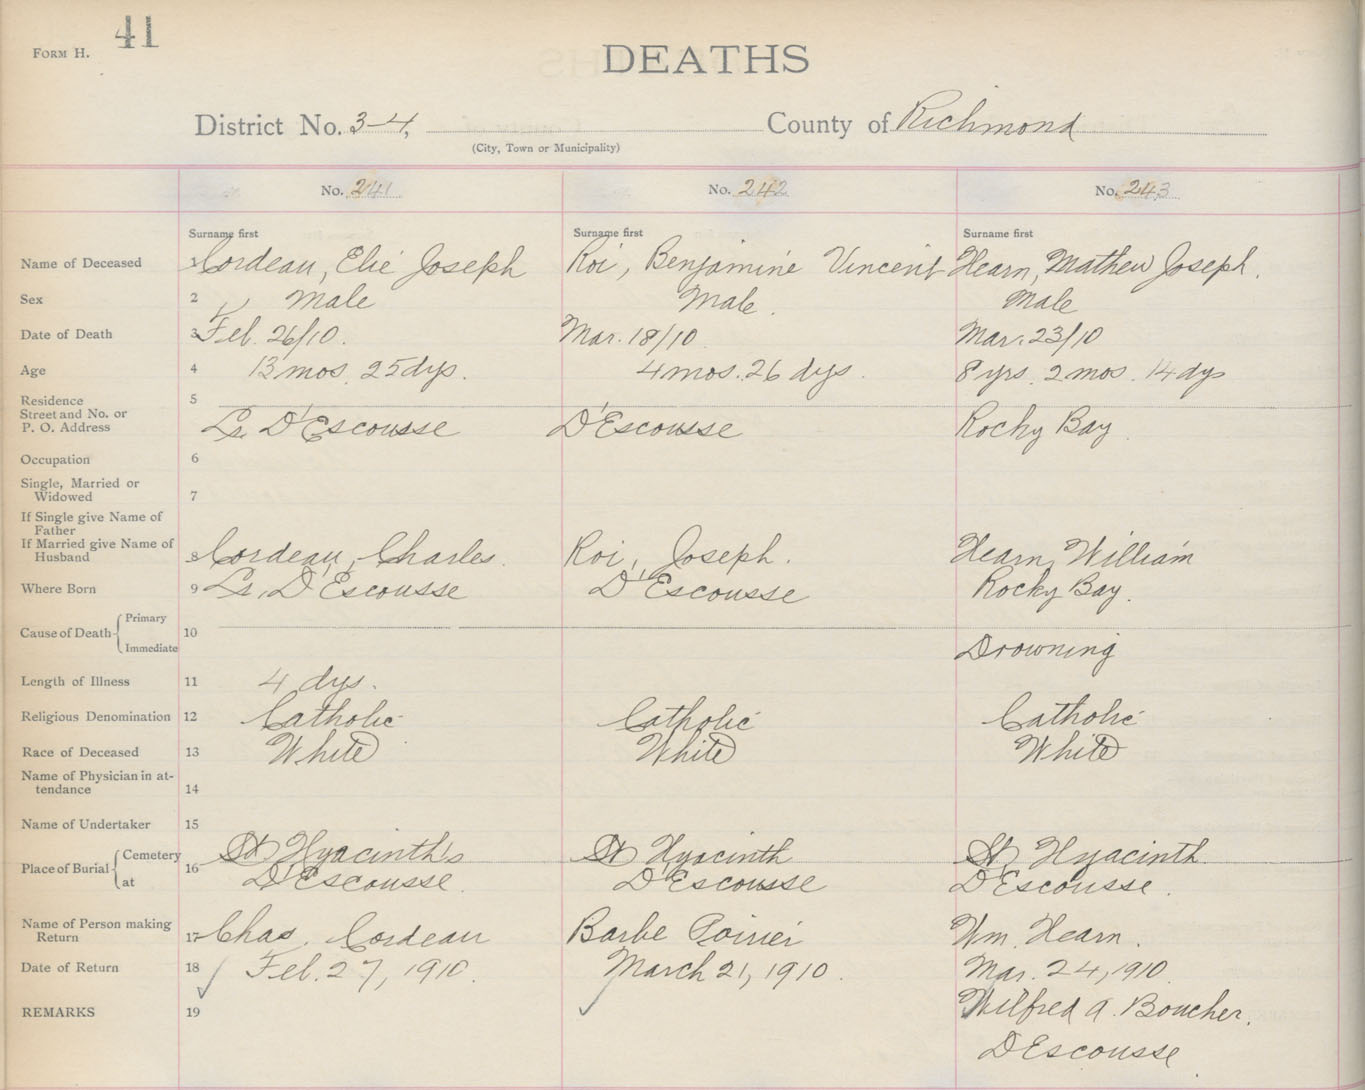 41
FORM H.
DEATHS
District No. 3-4, County of Richmond
(City, Town or Municipality)
No. 241 No. 242 No. 243
Surname first Surname first Surname first
Name of Deceased 1 Cordeau, Elie Joseph Roi, Benjamine Vincent Hearn, Mathew Joseph.
Sex 2 Male Male. Male
Date of Death 3 Feb. 26/10. Mar. 18/10 Mar. 23/10
Age 4 13 mos. 25 dys. 4 mos. 26 dys. 8 yrs. 2 mos. 14 dys
Residence 5
Street and No. or
P. O. Address D'Escousse D'Escousse Rocky Bay
Occupation 6
Single, Married or
Widowed 7
If Single give Name of
Father
If Married give Name of
Husband 8 Cordeau, Charles. Roi, Joseph. Hearn, William
Where Born 9 D'Escousse D'Escousse Rocky Bay.
Cause of Death Primary 10
Immediate Drowning
Length of Illness 11 4 dys.
Religious Denomination 12 Catholic Catholic Catholic
Race of Deceased 13 White White White
Name of Physician in at-
tendance 14
Name of Undertaker 15
Place of Burial Cemetery 16 St Hyacinth's St Hyacinth St Hyacinth
at D'Escousse. D'Escousse D'Escousse.
Name of Person making
Return 17 Chas. Cordeau Barbe Poirier Wm. Hearn.
Date of Return 18 Feb. 27, 1910. March 21, 1910. Mar. 24, 1910
REMARKS 19 Wilfred A. Boucher.
DEscousse